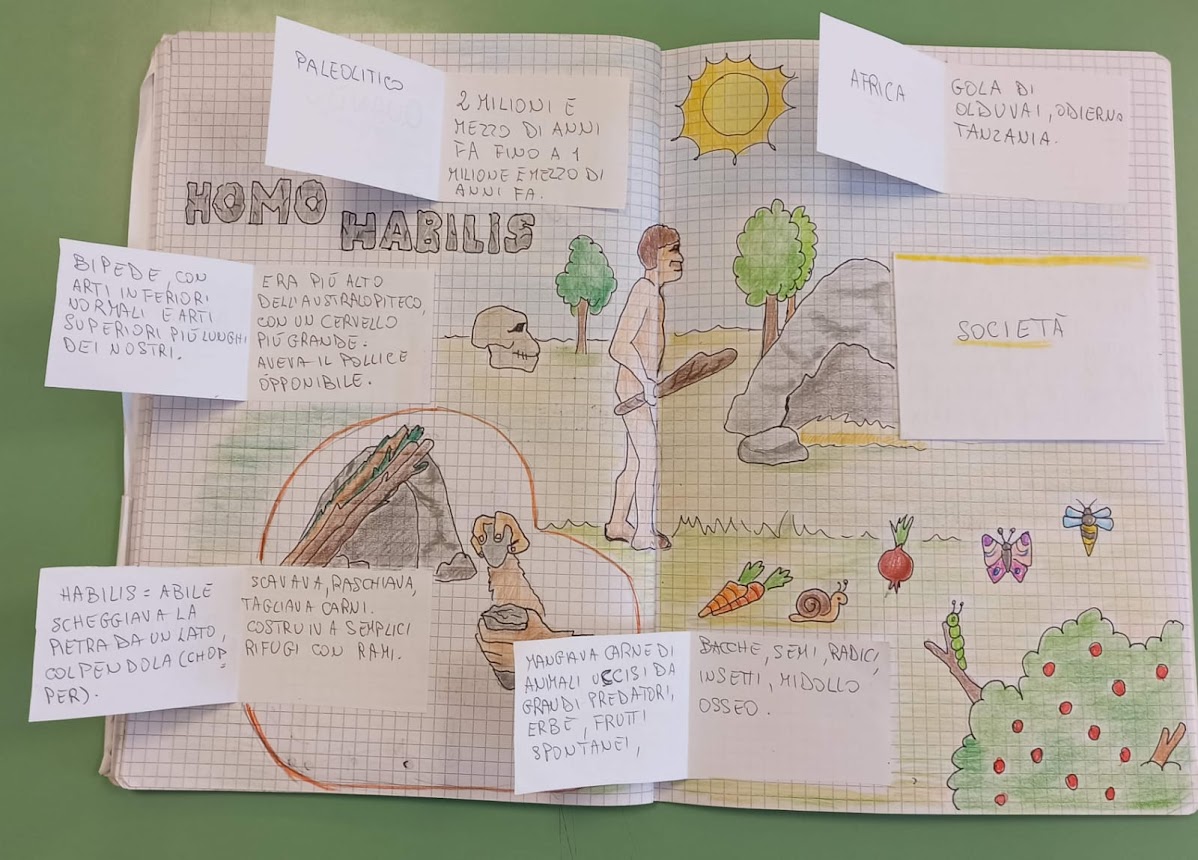 PALEOLITICO
2 MILIONI E
MEZZO DI ANNI
FA FINO A 1
MILIONE E MEZZO DI
ANNI FA.
AFRICA
GOLA DI
OLDUVAI, ODIERNA
TANZANIA.
HOMO
HABILIS
BIPEDE, CON
ARTI INFERIORI
NORMALI E ARTI
SUPERIORI PIÚ LUNGHI
DEI NOSTRI.
ERA PIÚ ALTO
DELL'AUSTRALOPITECO,
CON UN CERVELLO
PIÚ GRANDE:
AVEVA IL POLLICE
OPPONIBILE.
SOCIETÀ
HABILIS = ABILE
SCHEGGIAVA LA
PIETRA DA UN LATO,
COLPENDOLA (CHOP=
PER).
SCAVAVA, RASCHIAVA,
TAGLIAVA CARNI.
COSTRUIVA SEMPLICI
RIFUGI CON RAMI.
MANGIAVA CARNE DI
ANIMALI UCCISI DA
GRANDI PREDATORI,
ERBE, FRUTTI
SPONTANEI,
BACCHE, SEMI, RADICI,
INSETTI, MIDOLLO
OSSEO.